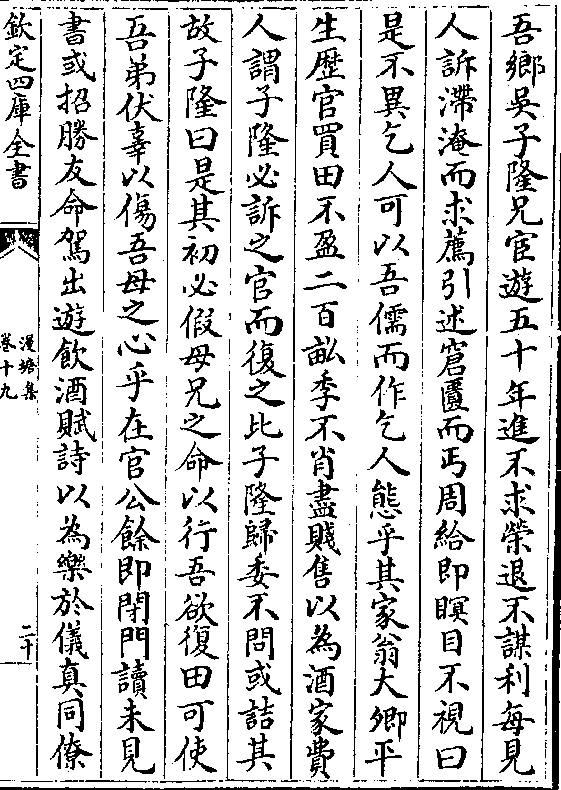 吾鄉吳子隆兄宦遊五十年進不求榮退不謀利每見
人訴滯淹而求薦引述窘匱而丐周給即瞑目不視曰
是不異乞人可以吾儒而作乞人態乎其家翁大卿平
生歴官買田不盈二百畝季不肖盡賤售以為酒家費
人謂子隆必訴之官而復之比子隆歸委不問或詰其
故子隆曰是其初必假母兄之命以行吾欲復田可使
吾弟伏辜以傷吾母之心乎在官公餘即閉門讀未見
書或招勝友命駕出遊飲酒賦詩以為樂於儀真同僚
欽定四庫全書
漫塘集
卷十九
二十